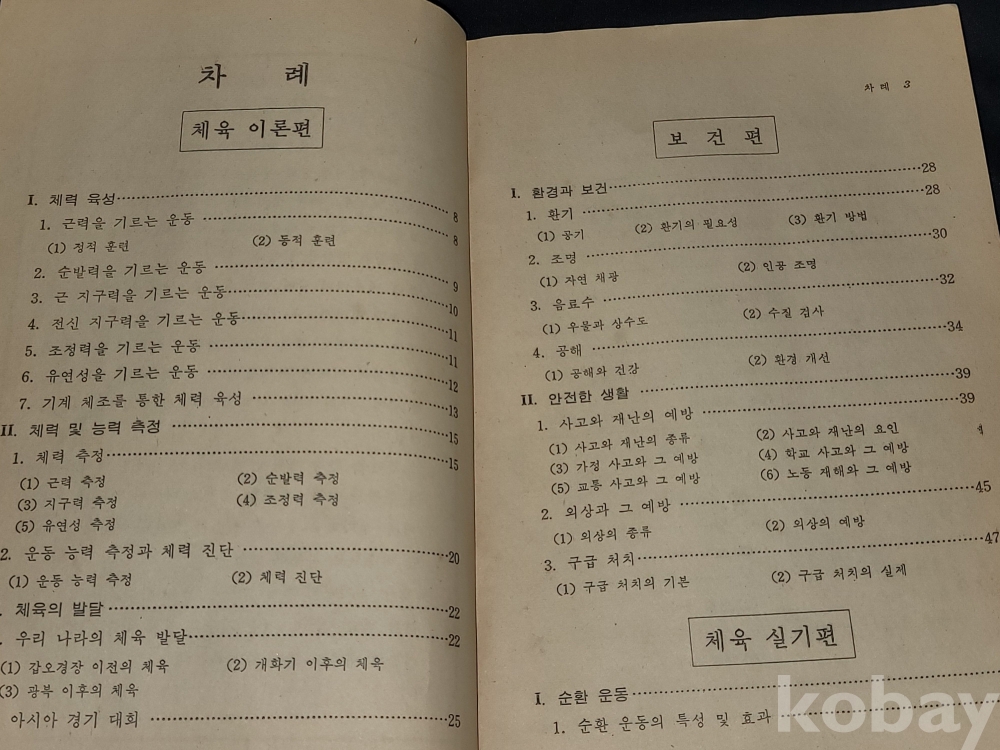 차 례
체육 이론편
I. 체력 육성 8
1. 근력을 기르는 운동 8
(1) 정적 훈련 (2) 동적 훈련
2. 순발력을 기르는 운동 9
3. 근 지구력을 기르는 운동 10
4. 전신 지구력을 기르는 운동 11
5. 조정력을 기르는 운동 11
6. 유연성을 기르는 운동 12
7. 기계 체조를 통한 체력 육성 13
II. 체력 및 능력 측정 15
1. 체력 측정 15
(1) 근력 측정 (2) 순발력 측정
(3) 지구력 측정 (4) 조정력 측정
(5) 유연성 측정
2. 운동 능력 측정과 체력 진단 20
(1) 운동 능력 측정 (2) 체력 진단
. 체육의 발달 22
. 우리 나라의 체육 발달 22
(1) 갑오경장 이전의 체육 (2) 개화기 이후의 체육
(3) 광복 이후의 체육
아시아 경기 대회 25
차 례 3
보 건 편
I. 환경과 보건 28
1. 환기 28
(1) 공기 (2) 환기의 필요성 (3) 환기 방법
2. 조명 30
(1) 자연 채광 (2) 인공 조명
3. 음료수 32
(1) 우물과 상수도 (2) 수질 검사
4. 공해 34
(1) 공해와 건강 (2) 환경 개선
II. 안전한 생활 39
1. 사고와 재난의 예방 39
(1) 사고와 재난의 종류 (2) 사고와 재난의 요인
(3) 가정 사고와 그 예방 (4) 학교 사고와 그 예방
(5) 교통 사고와 그 예방 (6) 노동 재해와 그 예방
2. 외상과 그 예방 45
(1) 외상의 종류 (2) 외상의 예방
3. 구급 처치 47
(1) 구급 처치의 기본 (2) 구급 처치의 실제
체육 실기편
I. 순환 운동
1. 순환 운동의 특성 및 효과
kobay